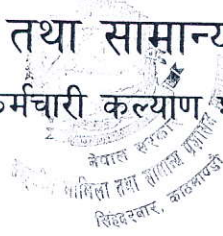 तथा सामान्य
कर्मचारी कल्याण
नेपाल सरकार
मामिला तथा सामान्य प्रशासन
सिंहदरबार, काठमाण्डौ